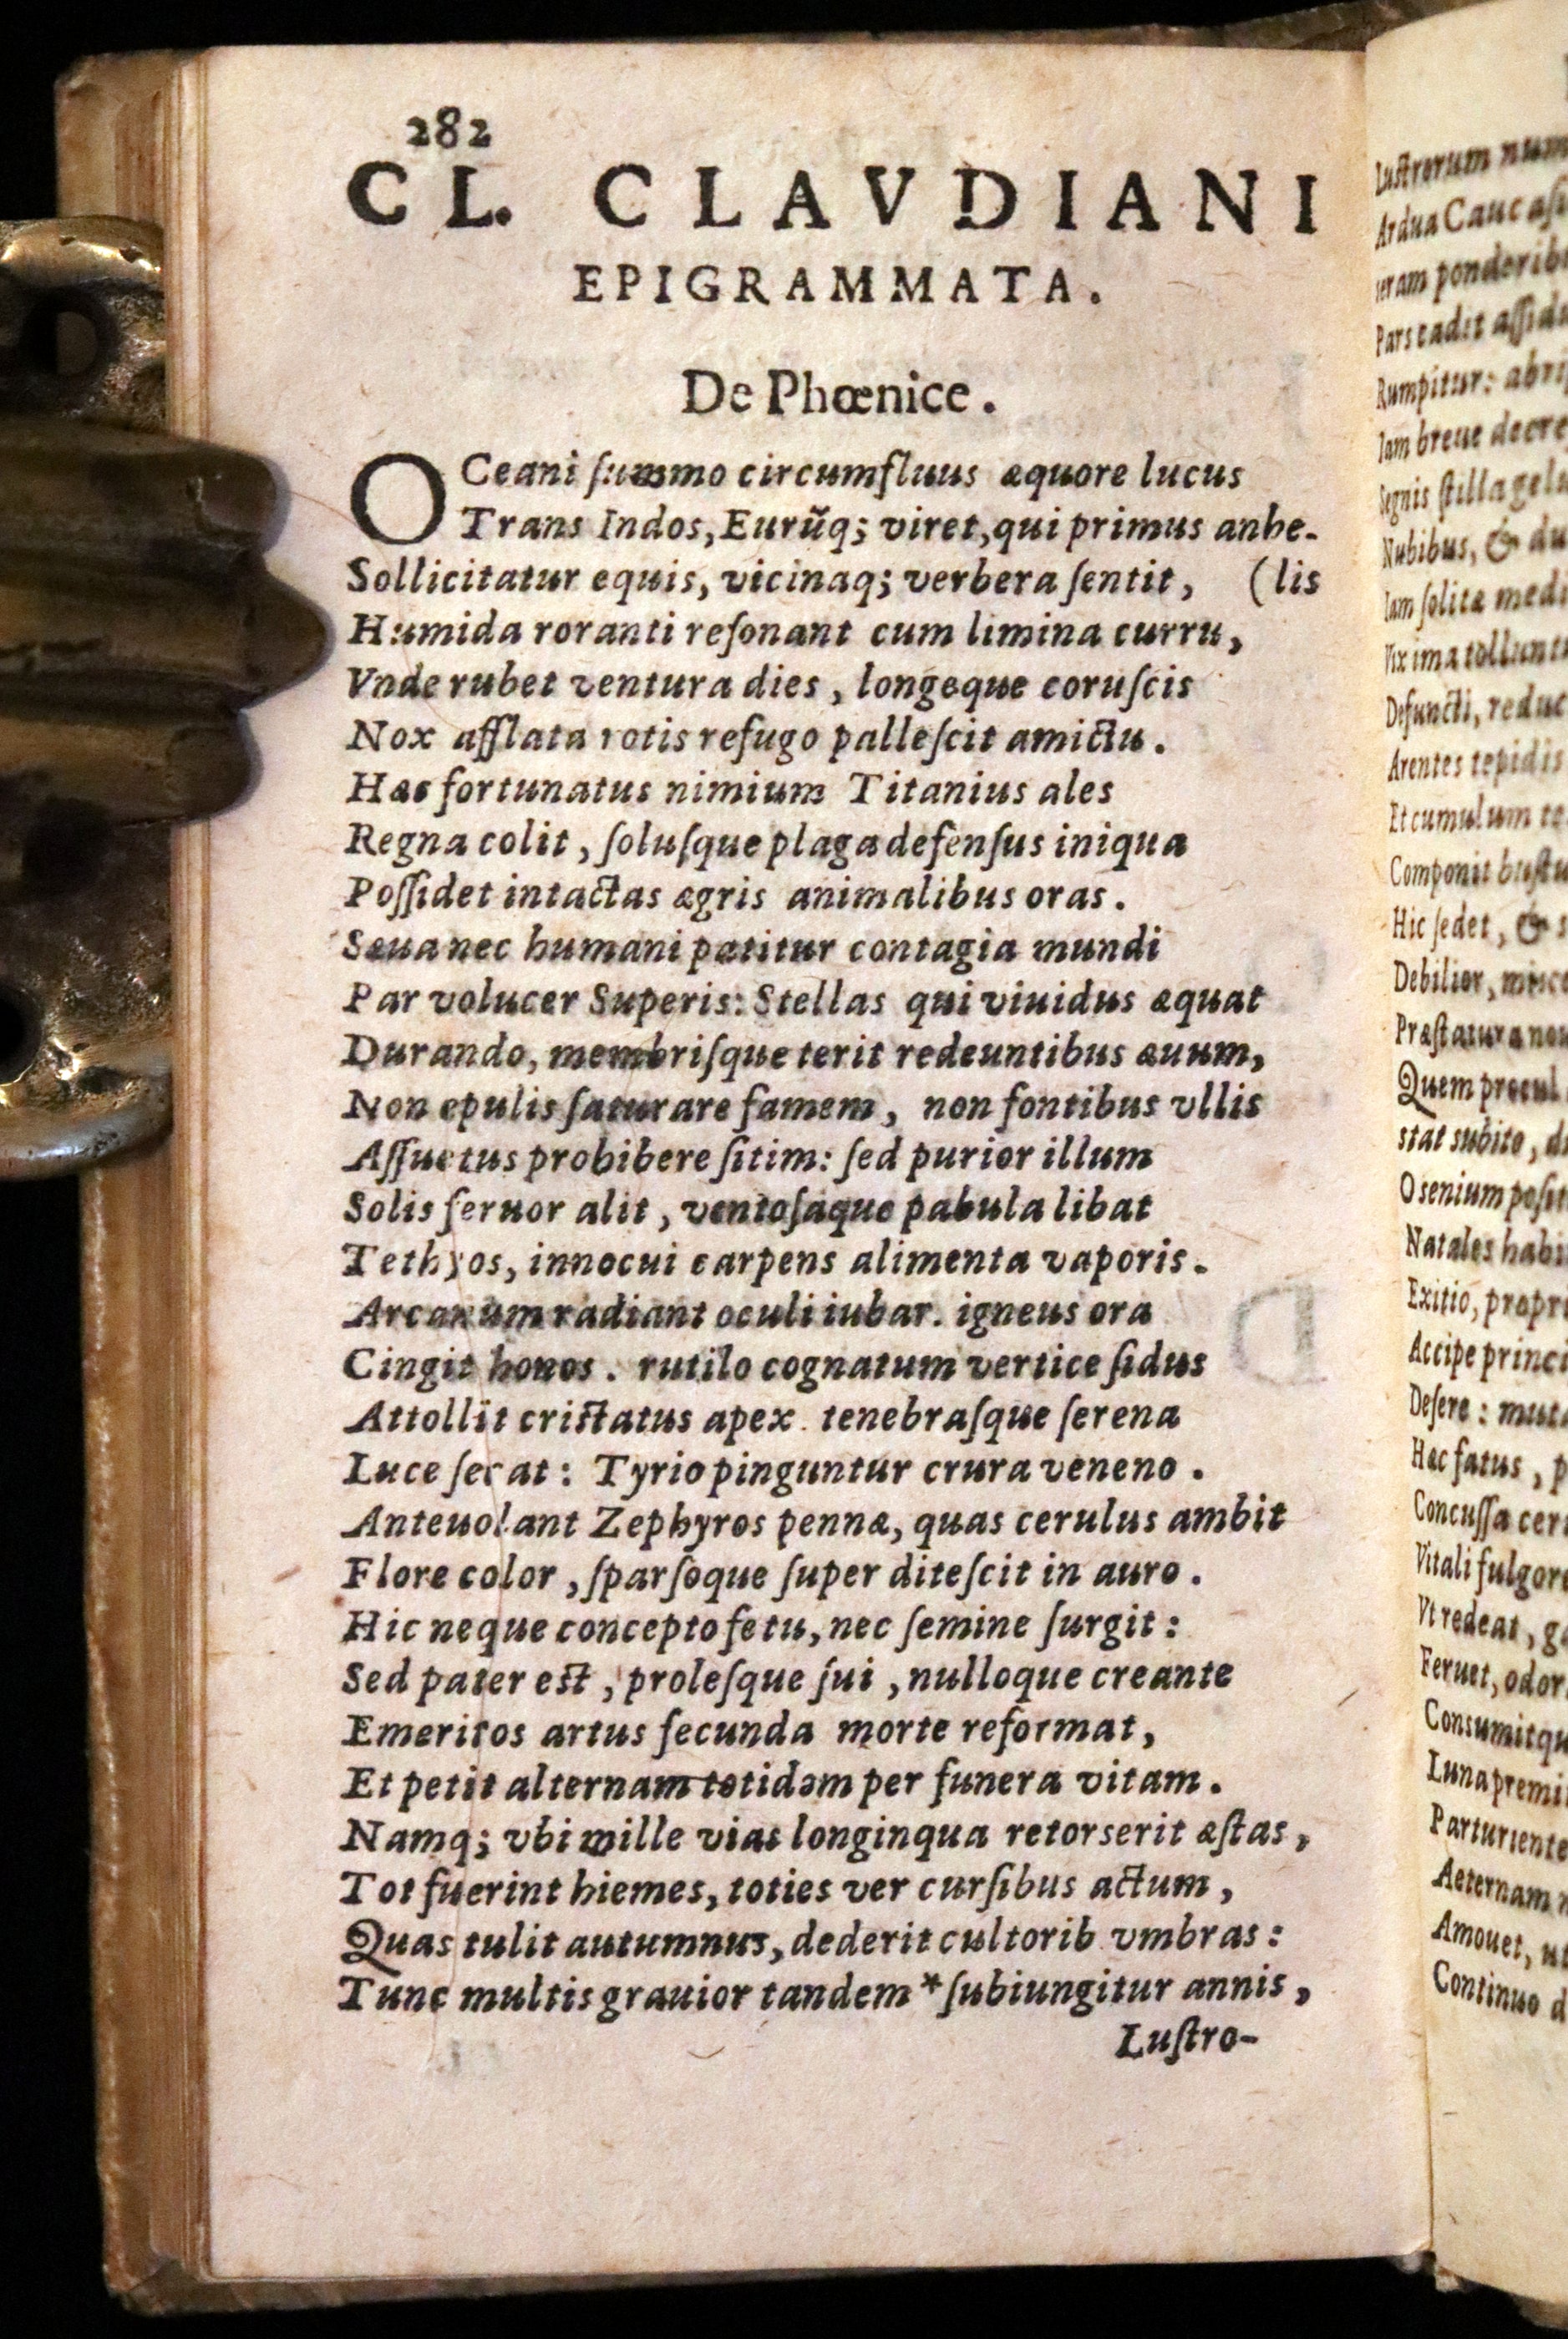 282
CL. CLAVDIANI
EPIGRAMMATA.
De Phœnice.
OCeani ſummo circumfluus æquore lucus
Trans Indos, Eurũq; viret, qui primus anhe-
Sollicitatur equis, vicinaq; verbera ſentit, (lis
Humida roranti reſonant cum limina curru,
Vnde rubet ventura dies, longeque coruſcis
Nox afflata rotis refugo palleſcit amictu.
Hæc fortunatus nimium Titanius ales
Regna colit, ſoluſque plaga defenſus iniqua
Poſſidet intactas ægris animalibus oras.
Sæua nec humani patitur contagia mundi
Par volucer Superis: Stellas qui viuidus æquat
Durando, membriſque terit redeuntibus æuum,
Non epulis ſaturare famem, non fontibus vllis
Aſſuetus prohibere ſitim: ſed purior illum
Solis feruor alit, ventoſaque pabula libat
Tethyos, innocui carpens alimenta vaporis.
Arcanum radiant oculi iubar. igneus ora
Cingit honos. rutilo cognatum vertice ſidus
Attollit criſtatus apex. tenebraſque ſerena
Luce ſecat: Tyrio pinguntur crura veneno.
Anteuolant Zephyros pennæ, quas cerulus ambit
Flore color, ſparſoque ſuper diteſcit in auro.
Hic neque concepto fetu, nec ſemine ſurgit:
Sed pater eſt, proleſque ſui, nulloque creante
Emeritos artus ſecunda morte reformat,
Et petit alternam totidem per funera vitam.
Namq; vbi mille vias longinqua retorserit æſtas,
Tot fuerint hiemes, toties ver curſibus actum,
Quas tulit autumnus, dederit cultorib vmbras:
Tunc multis grauior tandem *ſubiungitur annis,
Luſtro-
Luſtrorum
Ardua Caucaſi
Pars cadit
Rumpitur:
Iam breue
Segnis ſtilla
Nubibus, &
Iam ſolitæ
Vix ima
Defuncti,
Arentes tepidis
Et cumulum
Componit
Hic ſedet, &
Debilior,
Præſtatura
Quem procul
stat subito,
O senium
Natales
Exitio,
Accipe
Deſere:
Hæc fatus,
Concuſſa
Vitali
Vt redeat,
Feruet,
Luna
Aeternam
Amouet,
Continuo